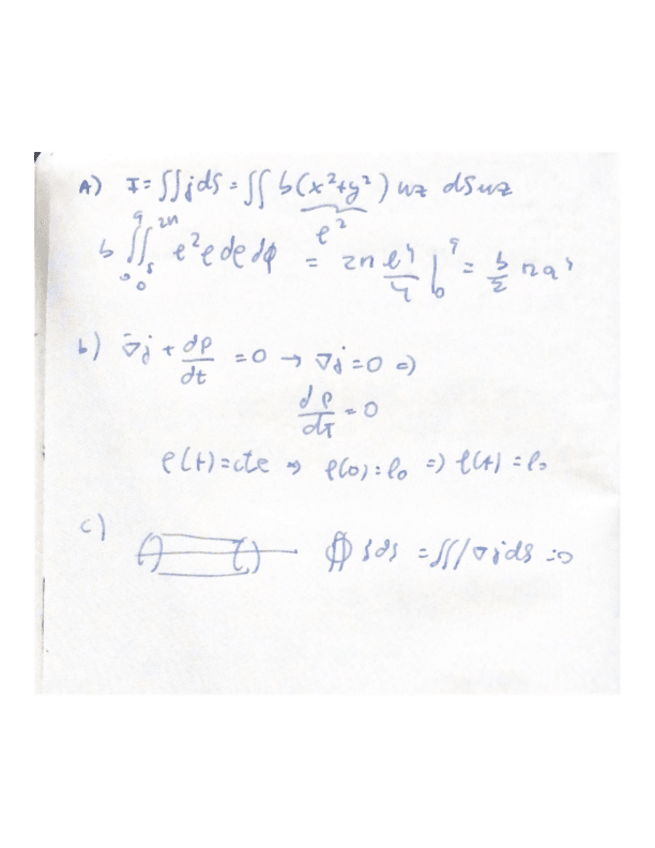 A) I = ∫∫ j dS = ∫∫ b(x²+y²) uz dS uz
ρ²
b ∫₀ᵃ ∫₀²π ρ² ρ dρ dφ = 2π ρ⁴/4 |₀ᵃ = b/2 π a⁴
b) ∇j + dρ/dt = 0 → ∇j = 0 ⇒
dρ/dt = 0
ρ(t) = cte ⇒ ρ(0) = ρ₀ ⇒ ρ(t) = ρ₀
c) ∯ j dS = ∫∫∫ ∇j dS = 0